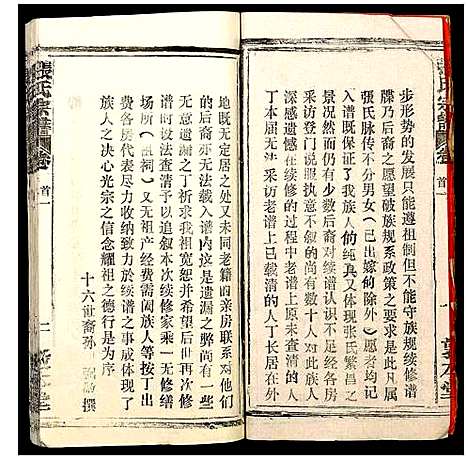 張氏宗譜
卷首
步形势的发展只能遵祖制但不能守族规续修谱
牒乃后裔之愿望破族规系政策之要求是此凡属
張氏脉传不分男女（已出嫁的除外）愿者均记
入谱既保证了我族人的纯真又体现了张氏繁昌之
景况然而仍有少数后裔对续谱认识不足经各房
采访登门说服执意不叙的尚有数十人对此族人
深感遗憾在续修的过程中老谱上原未查清的人
丁本届无法采访老谱上已查清的人丁长居在外
地既无定居之处又未同老籍四亲房联系对他们
的后裔亦无法载入谱内这是遗漏之弊尚有一些
无意遗漏之丁祈求我祖宽恕并希望后届再次续修
谱时设法查清予以追叙本次续修家乘一无修缮
场所（祖祠）又无祖产经费需阖族人等按丁出
费各房代表尽力收纳致力於续谱之事成体现了
族人之决心光宗之信念耀祖之德行是为序
十六世裔孙
撰
張氏宗譜
卷首
二